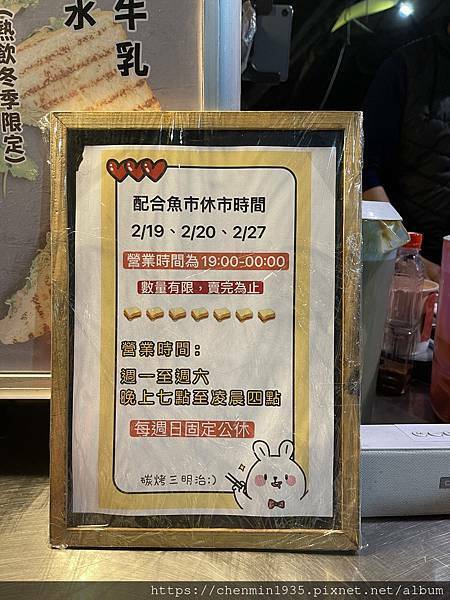 牛乳
水
(熱飲冬季限定)
配合魚市休市時間
2/19、2/20、2/27
營業時間為19:00-00:00
數量有限，賣完為止
營業時間：
週一至週六
晚上七點至凌晨四點
每週日固定公休
碳烤三明治:)
https://chenmin1935.pixnet.net/album